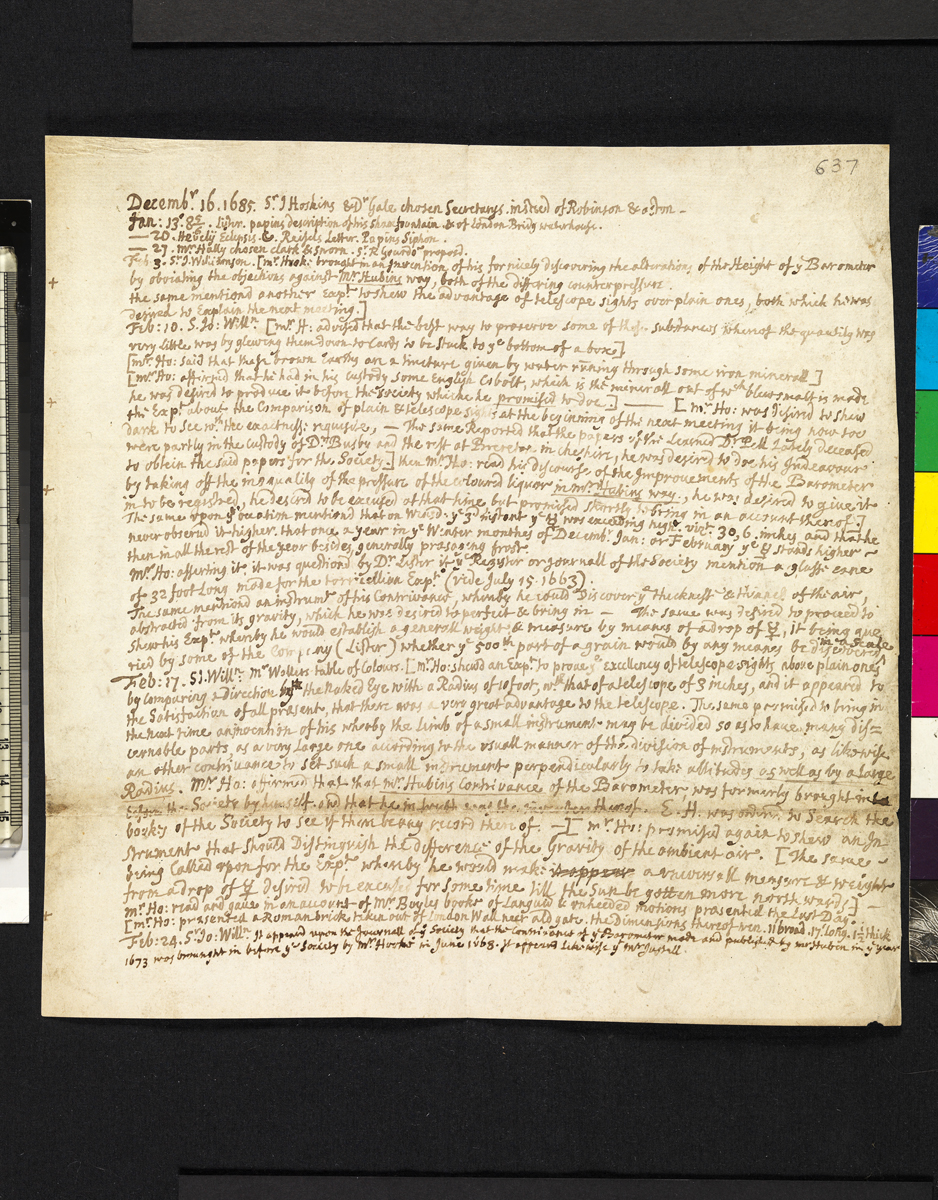 637
Decembr. 16. 1685. Sr. J Hoskins & Dr Gale chosen Secretarys. instead of Robinson & Aston -
Jan: 13. &c. Papins description of his Sham fountain & of London Bridg waterhouse.
— 20. Hevelij Eclypsis &. Reisels Letter. Papins Siphon.
— 27. mr. Hally chosen clark & sworn. Sr. R propos'd.
Feb 3. Sr. J. Williamson. [mr. Hook: brought in an Invention of his for nicely discovering the alterations of the Height of ye Barometer
by obviating the objections against Mr Hubins way, both of the differing counterpressure.
the same mentiond another Expt. to shew the advantage of telescope sights over plain ones, both which he was
desired to Explain the next meeting.]
Feb: 10. S. Jo: Willn. [mr. H: advised that the best way to preserve some of these substances wherof the quantity was
very little was by glewing them down to Cards to be stuck to ye bottom of a box.]
[mr. Ho: said that these brown Earths are a tincture given by water running through some iron minerall]
[mr. Ho: affirmed that he had in his custody some English Cobolt, which is the minerall out of wch. blew smalt is made
he was desired to produce it before the Society which he promised to doe.] — [mr. Ho: was desired to shew
the Expt. about the Comparison of plain & telescope sights at the beginning of the next meeting it being now too
dark to see wth. the exactnesse requisite, — The same Reported that the papers of the Learned Dr Pell Lately deceased
were partly in the custody of Dr. Busby and the rest at Brereton in cheshire, he was desired to doe his Indeavour
to obtain the said papers for the Society.] then mr. Ho: read his discourse of the Improvements of the Barometer
by taking off the inequality of the pressure of the coloured liquor in mr. Hubins way, he was desired to give it
in to be registred, he desird to be excused at that time but promised shortly to bring in an account therof.]
The same upon ye occation mentiond that on ye 3d. instant ye ☿ was exceeding high vizt. 30,6 inches and that he
never observd it higher. that once a year in ye Winter monthes of Decembr. Jan: or February ye ☿ stands higher
then in all the rest of the year besides, generally presaging frost.
Mr. Ho: affering it it was questiond by Dr. Lister if ye Register or journall of the Society mention a glasse cane
of 32 foot Long made for the torricellian Expt. (vide July 15. 1663).
The same mentiond an instrumt. of his Contrivance, wherby he could Discover ye thicknesse & thinnes of the air,
abstracted from its gravity, which he was desired to perfect & bring in — The same was desired to proceed to
shew his Expt. wherby he would establish a generall weight & measure by means of a drop of ☿, it being que
ried by some of the Company (Lister) whether ye 500th part of a grain would by any means be discoverd in a Scale
Feb: 17. SJ. Willn: mr Wollers table of Colours. [mr. Ho: shewd an Expt. to prove ye excellency of telescope sights above plain ones
by comparing a Direction the Naked Eye with a Radius of 10 foot, wth. that of a telescope of 3 inches, and it appeared to
the Satisfaction of all present, that there was a very great advantage to the telescope. The same promised to bring in
the next time an invention of his wherby the Limb of a small instrument may be divided so as to have many dis=
cernable parts, as a very Large one according to the usuall manner of the division of instruments, as likewise
an other contrivance to set such a small instrument perpendicularly to take altitudes as well as by a Large
Radius. Mr. Ho: affirmed that that mr. Hubins contrivance of the Barometer, was formerly brought in to
before the Society by himself. and that he in truth was the inventer therof. E. H. was orderd to search the
books of the Society to see if there be any record therof. — [mr Ho: promised again to shew an In
strument that should Distinguish the difference of the Gravity of the ambient air. [The same
being Called upon for the Expt. wherby he would make a universall measure & weight
from a drop of ☿ desired to be excused for some time till the Sun be gotten more northwards] —
mr. Ho: read and gave in an account of mr. Boyles booke of Languid & unheeded motions presented the Last Day.
[mr. Ho: presented a Roman brick taken out of London Wall neer aldgate. the Dimensions therof were. 11 broad. 17 long. 1½ thick
Feb: 24. Sr. Jo: Willn. It appeard upon the Journall of ye Society that the Contrivance of ye Barometer made and published by mr Hubin in ye year
1673 was brought in before ye Society by Mr. Hooke in June 1668. It appeard likewise ye mr Justell.